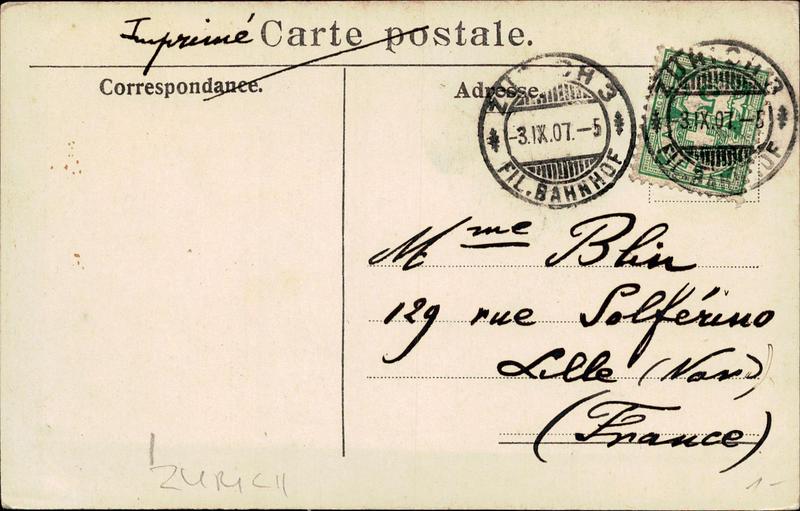 Imprimé Carte postale.
Correspondance.
Adresse.
ZÜRICH 3
-3.IX.07.-5
FIL. BAHNHOF
ZÜRICH 3
-3.IX.07.-5
FIL. BAHNHOF
Mme Blin
129 rue Solférino
Lille (Nord)
(France)
ZURICH
1-